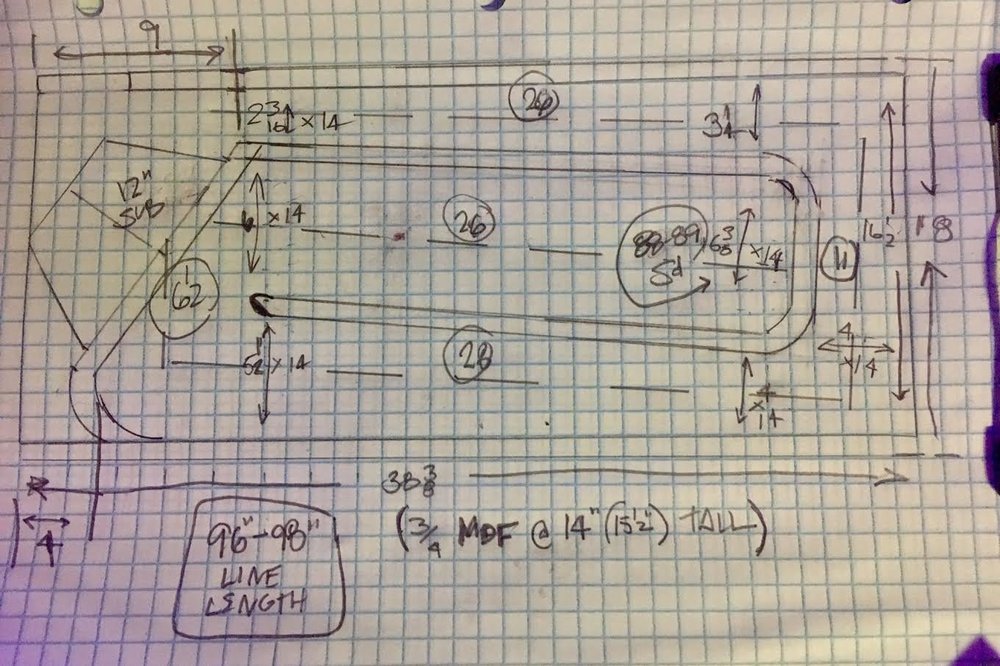 9
26
2 3/16 x 14
3 1/4
12"
SUB
6 x 14
26
88-89
Sd
6 3/8
x 14
11
16 1/2
18
6 1/2
5 1/2 x 14
28
4
x 14
4
x 14
38 3/8
4
96"-98"
LINE
LENGTH
(3/4 MDF @ 14" (15 1/2") TALL)